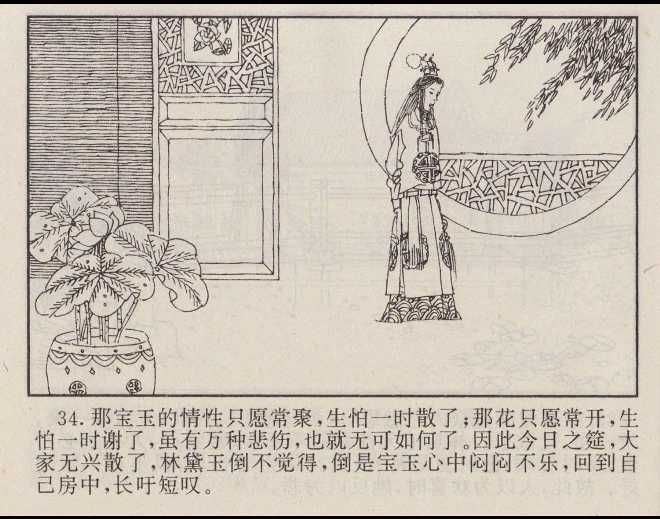 34.那宝玉的情性只愿常聚,生怕一时散了;那花只愿常开,生
怕一时谢了,虽有万种悲伤,也就无可如何了。因此今日之筵,大
家无兴散了,林黛玉倒不觉得,倒是宝玉心中闷闷不乐,回到自
己房中,长吁短叹。